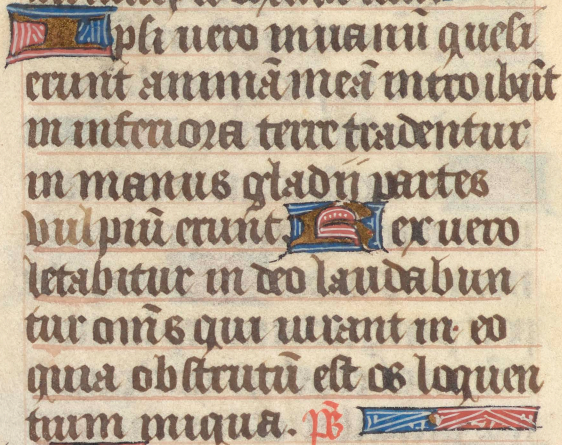 Ipsi uero in uanū quesi
erunt animā meā intro ibūt
in inferiora terre tradentur
in manus gladij partes
vulpiū erunt. Rex uero
letabitur in deo laudabun
tur om̄s qui iurant in eo
quia obstrutū est os loquen
tium iniqua. ps̄